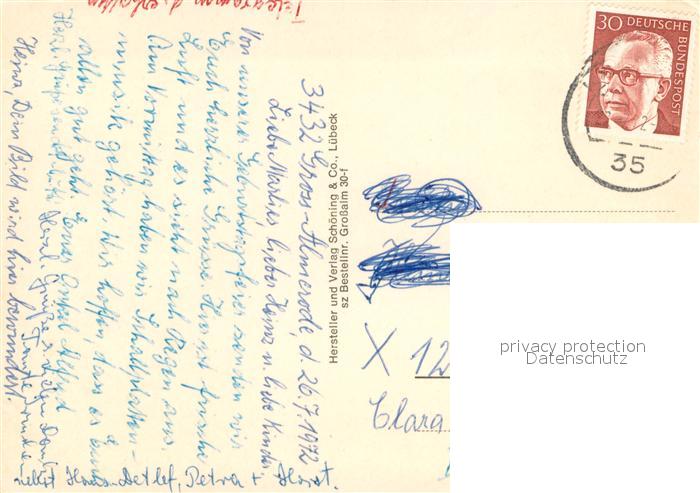 3432 Gross-Almerode, d. 26.7.1972
Liebe Martina, lieber Heinz u. liebe Kinder
Von unserer Geburtstagsfeier senden wir
Euch herzliche Grüsse. Hier ist frische
Luft und es sieht nach Regen aus.
Am Vormittag haben wir Schallplatten-
musik gehört. Wir hoffen, dass es Euch
allen gut geht. Euer Onkel Alfred
Herzl. Grüße u. vielen Dank
Tante
Herzl. Grüße
Heinz, Dein Bild wird hier bewundert.
nebst Hans-Detlef, Petra + Horst.
Telegramm d. erhalten
Hersteller und Verlag Schöning & Co., Lübeck
sz Bestellnr. Großalm 30-f
30 DEUTSCHE
BUNDESPOST
35
X 12
Clara
privacy protection
Datenschutz